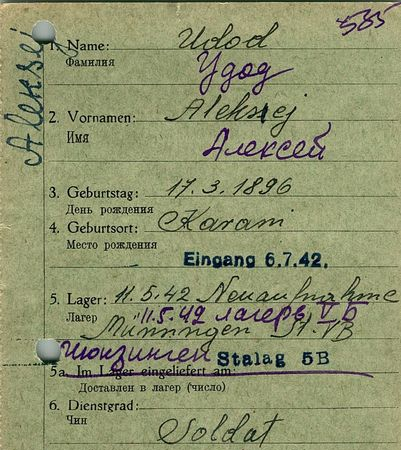 535
Aleksej
1. Name: Udod
Фамилия Удод
2. Vornamen: Aleksej
Имя Алексей
3. Geburtstag: 17.3.1896
День рождения
4. Geburtsort: Karani
Место рождения
Eingang 6.7.42.
5. Lager: 11.5.42 Neuaufnahme
Лагерь 11.5.42 лагерь V b
Münsingen St. VB
Мюнзинген Stalag 5B
5a. Im Lager eingeliefert am:
Доставлен в лагер (число)
6. Dienstgrad:
Чин
Soldat